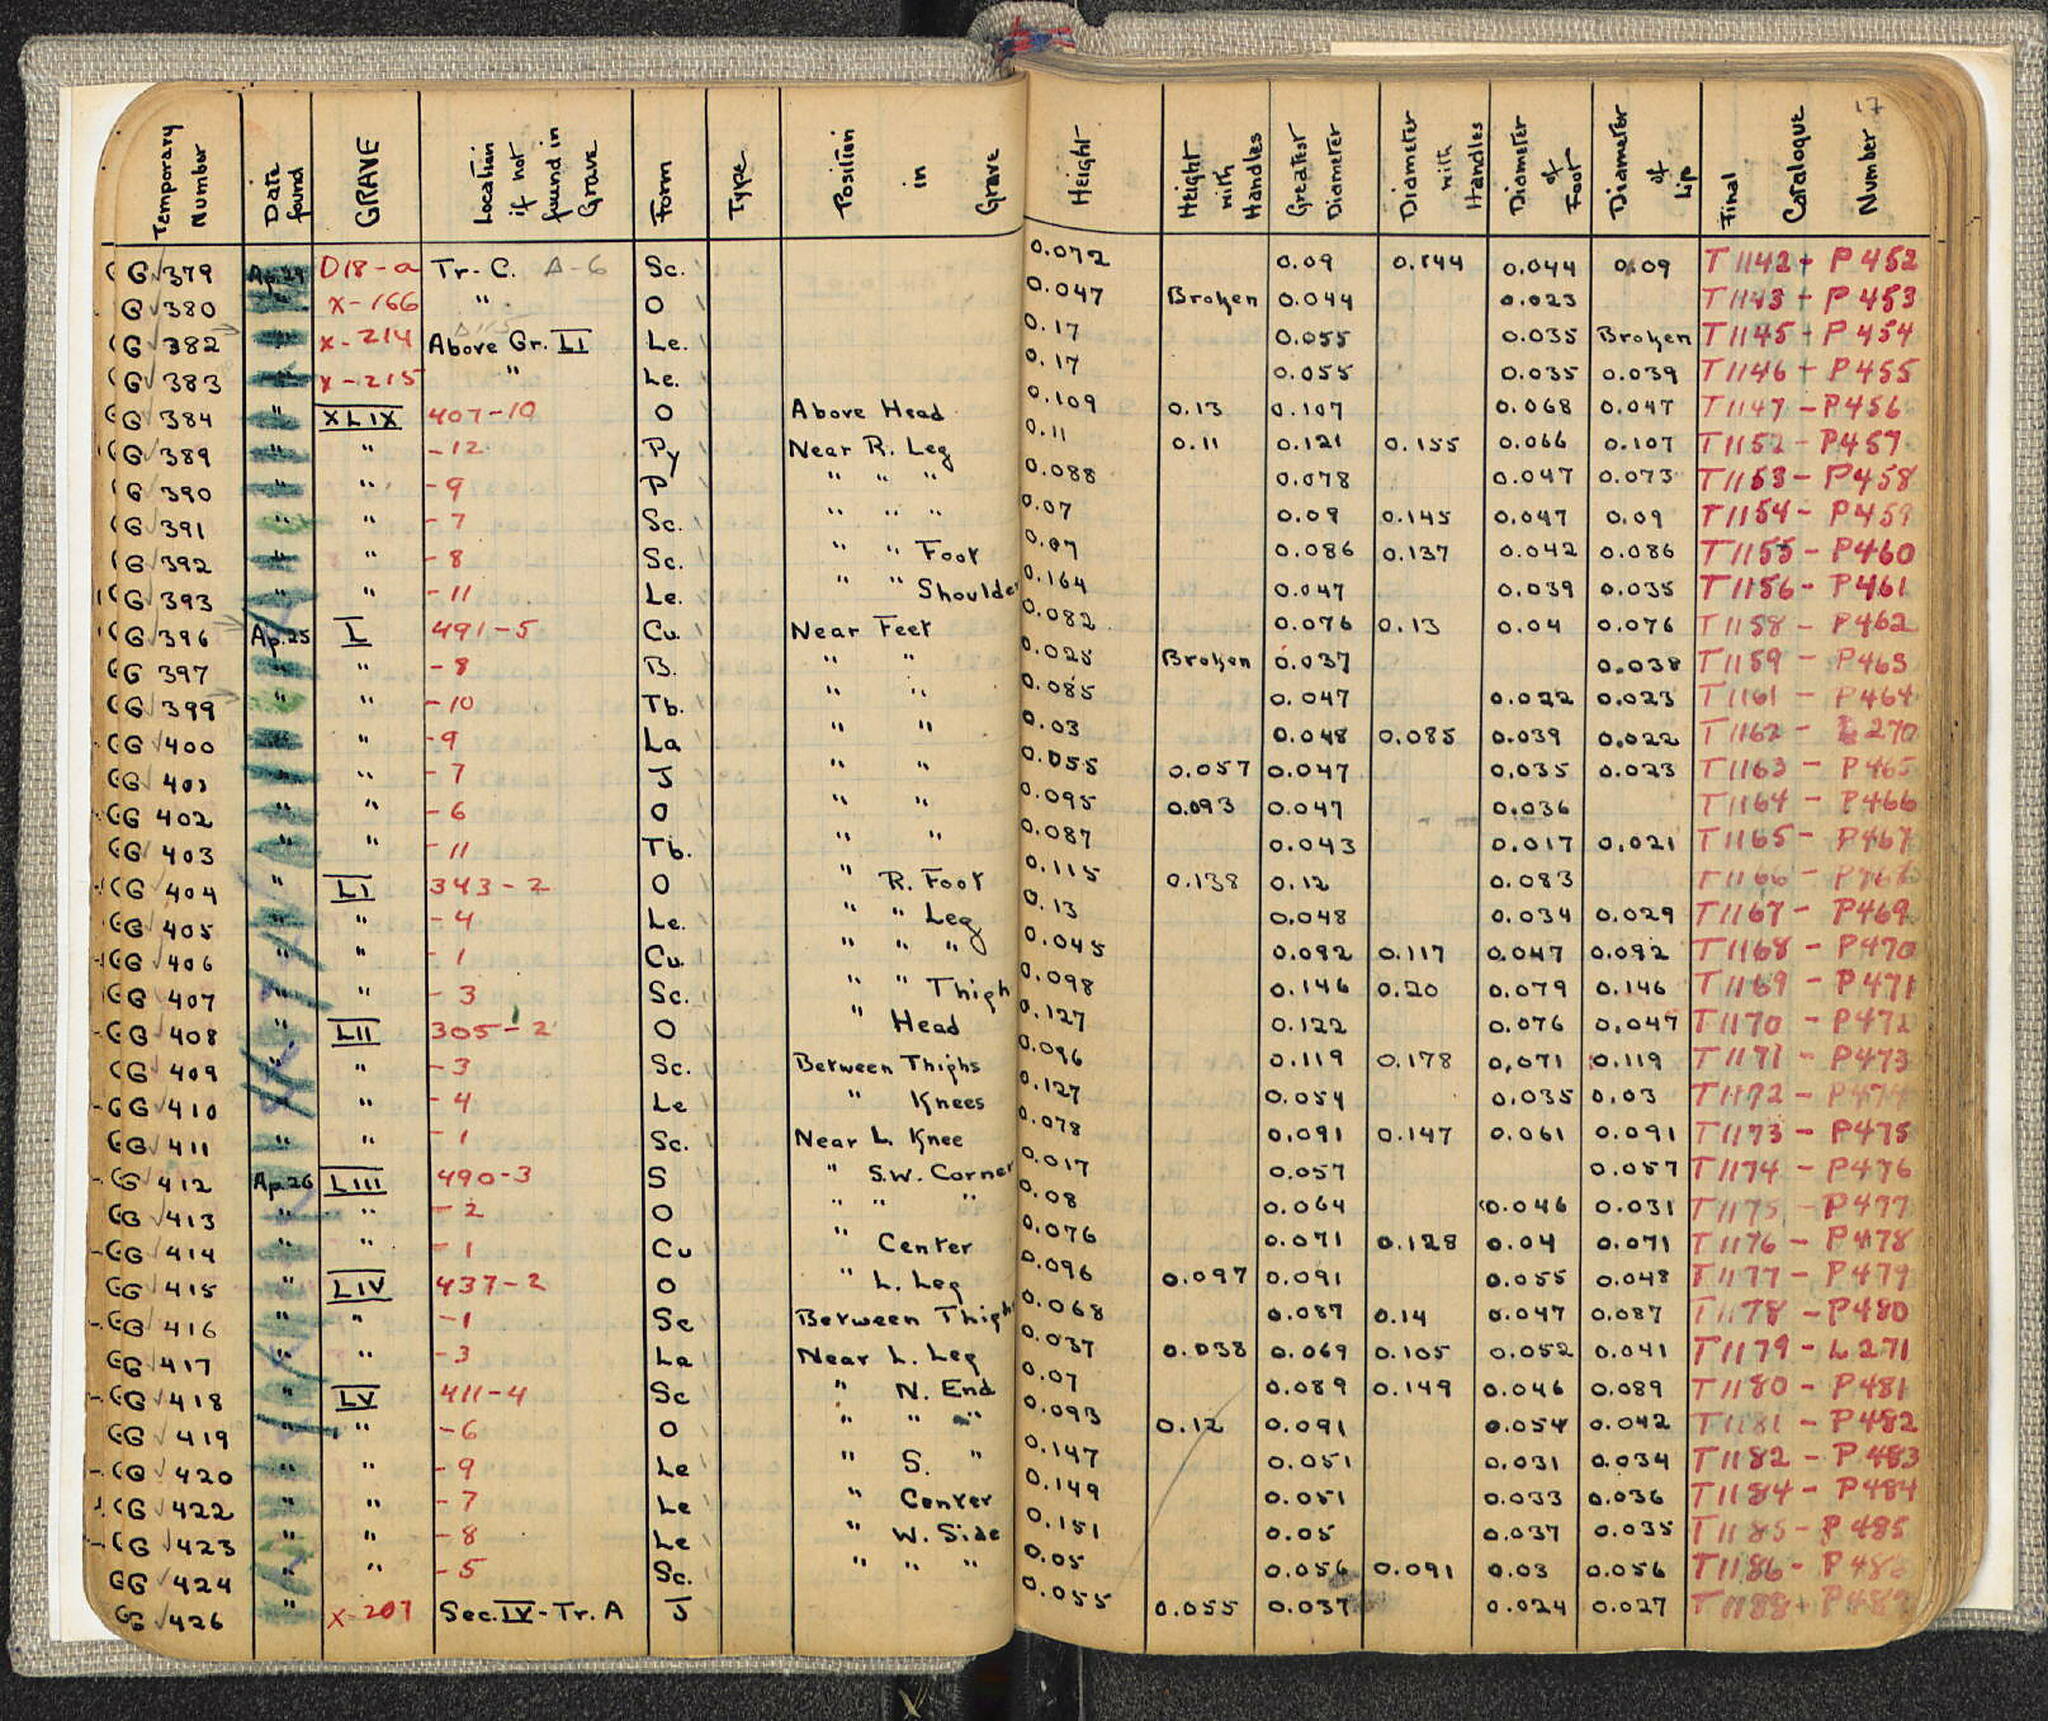 17
Temporary Number | Date found | GRAVE | Location if not found in Grave | Form | Type | Position in Grave | Height | Height with Handles | Greatest Diameter | Diameter with Handles | Diameter of Foot | Diameter of Lip | Final Catalogue Number
G 379 | Ap. 24 | D18-a | Tr-C. A-6 | Sc. | 0.072 | 0.09 | 0.144 | 0.044 | 0.09 | T 1142 - P 452
G 380 | " | x-166 | " | O | 0.047 | Broken | 0.044 | 0.023 | T 1143 - P 453
G 382 | " | x-214 | Above Gr. LI | Le. | 0.17 | 0.055 | 0.035 | Broken | T 1145 - P 454
G 383 | " | x-215 | " | Le. | 0.17 | 0.055 | 0.035 | 0.039 | T 1146 - P 455
G 384 | " | XLIX | 407-10 | O | Above Head | 0.109 | 0.13 | 0.107 | 0.068 | 0.047 | T 1147 - P 456
G 389 | " | " | -12 | Py | Near R. Leg | 0.11 | 0.11 | 0.121 | 0.155 | 0.066 | 0.107 | T 1152 - P 457
G 390 | " | " | -9 | P | " " " | 0.088 | 0.078 | 0.047 | 0.073 | T 1153 - P 458
G 391 | " | " | -7 | Sc. | " " " | 0.07 | 0.09 | 0.145 | 0.047 | 0.09 | T 1154 - P 459
G 392 | " | " | -8 | Sc. | " " Foot | 0.07 | 0.086 | 0.137 | 0.042 | 0.086 | T 1155 - P 460
G 393 | " | " | -11 | Le. | " " Shoulder | 0.164 | 0.047 | 0.039 | 0.035 | T 1156 - P 461
G 396 | Ap. 25 | L | 491-5 | Cu. | Near Feet | 0.082 | 0.076 | 0.13 | 0.04 | 0.076 | T 1158 - P 462
G 397 | " | " | -8 | B. | " " | 0.025 | Broken | 0.037 | 0.038 | T 1159 - P 463
G 399 | " | " | -10 | Tb. | " " | 0.085 | 0.047 | 0.022 | 0.023 | T 1161 - P 464
G 400 | " | " | -9 | La | " " | 0.03 | 0.048 | 0.085 | 0.039 | 0.022 | T 1162 - L 270
G 401 | " | " | -7 | J | " " | 0.055 | 0.057 | 0.047 | 0.035 | 0.023 | T 1163 - P 465
G 402 | " | " | -6 | O | " " | 0.095 | 0.093 | 0.047 | 0.036 | T 1164 - P 466
G 403 | " | " | -11 | Tb. | " " | 0.087 | 0.043 | 0.017 | 0.021 | T 1165 - P 467
G 404 | " | LI | 343-2 | O | " R. Foot | 0.115 | 0.138 | 0.12 | 0.083 | T 1166 - P 468
G 405 | " | " | -4 | Le. | " " Leg | 0.13 | 0.048 | 0.034 | 0.029 | T 1167 - P 469
G 406 | " | " | -1 | Cu. | " " " | 0.045 | 0.092 | 0.117 | 0.047 | 0.092 | T 1168 - P 470
G 407 | " | " | -3 | Sc. | " " Thigh | 0.098 | 0.146 | 0.20 | 0.079 | 0.146 | T 1169 - P 471
G 408 | " | LII | 305-2 | O | " Head | 0.127 | 0.122 | 0.076 | 0.047 | T 1170 - P 472
G 409 | " | " | -3 | Sc. | Between Thighs | 0.096 | 0.119 | 0.178 | 0.071 | 0.119 | T 1171 - P 473
G 410 | " | " | -4 | Le | " Knees | 0.127 | 0.054 | 0.035 | 0.03 | T 1172 - P 474
G 411 | " | " | -1 | Sc. | Near L. Knee | 0.078 | 0.091 | 0.147 | 0.061 | 0.091 | T 1173 - P 475
G 412 | Ap. 26 | LIII | 490-3 | S | " S.W. Corner | 0.017 | 0.057 | 0.057 | T 1174 - P 476
G 413 | " | " | -2 | O | " " " | 0.08 | 0.064 | 0.046 | 0.031 | T 1175 - P 477
G 414 | " | " | -1 | Cu | " Center | 0.076 | 0.071 | 0.128 | 0.04 | 0.071 | T 1176 - P 478
G 415 | " | LIV | 437-2 | O | " L. Leg | 0.096 | 0.097 | 0.091 | 0.055 | 0.048 | T 1177 - P 479
G 416 | " | " | -1 | Sc | Between Thighs | 0.068 | 0.087 | 0.14 | 0.047 | 0.087 | T 1178 - P 480
G 417 | " | " | -3 | La | Near L. Leg | 0.037 | 0.038 | 0.069 | 0.105 | 0.052 | 0.041 | T 1179 - L 271
G 418 | " | LV | 411-4 | Sc | " N. End | 0.07 | 0.089 | 0.149 | 0.046 | 0.089 | T 1180 - P 481
G 419 | " | " | -6 | O | " " " | 0.093 | 0.12 | 0.091 | 0.054 | 0.042 | T 1181 - P 482
G 420 | " | " | -9 | Le | " S. " | 0.147 | 0.051 | 0.031 | 0.034 | T 1182 - P 483
G 422 | " | " | -7 | Le | " Center | 0.149 | 0.051 | 0.033 | 0.036 | T 1184 - P 484
G 423 | " | " | -8 | Le | " W. Side | 0.151 | 0.05 | 0.037 | 0.035 | T 1185 - P 485
G 424 | " | " | -5 | Sc. | " " " | 0.05 | 0.056 | 0.091 | 0.03 | 0.056 | T 1186 - P 486
G 426 | " | x-207 | Sec. IV - Tr. A | J | 0.055 | 0.055 | 0.037 | 0.024 | 0.027 | T 1188